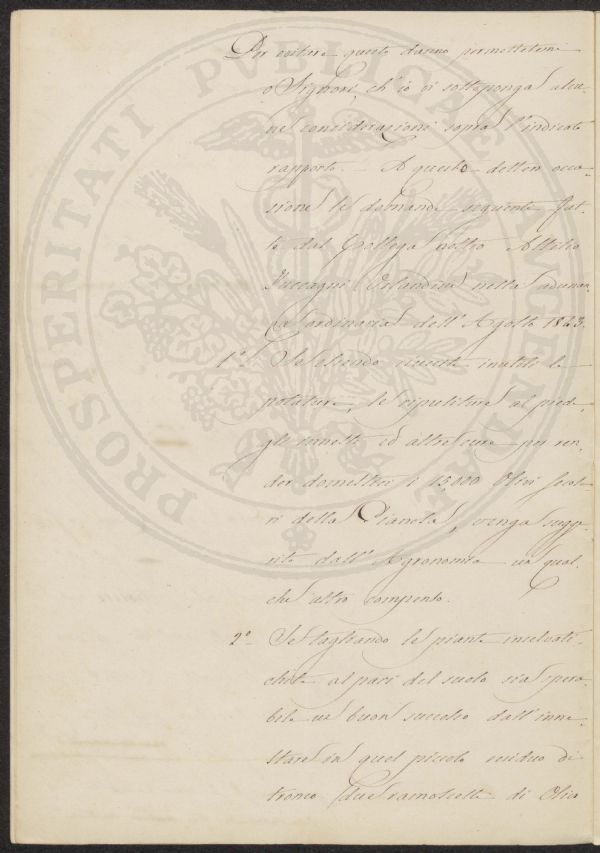 Per evitare questo danno permettetemi
o Signori, ch'io vi sottoponga alcu-
ne considerazioni sopra l'indicato
rapporto. - A questo detter occa-
sione le domande seguenti fat-
te dal Collega nostro Attilio
Zuccagni Orlandini nella adunan-
za ordinaria dell'Agosto 1843.
1º Se essendo riuscite inutili le
potature, le ripuliture al piede
gli innesti ed altre cure per ren-
der domestici i 15,000 Olivi secola-
ri della Pianola, venga sugge-
rito dall'Agronomia un qual-
che altro compenso.
2º Se tagliando le piante inselvati-
chite al pari del suolo sia spera-
bile un buon successo dall'inne-
stare in quel piccolo residuo di
tronco due ramoscelli di Olivo
PROSPERITATI PUBLICAE AUGENDAE